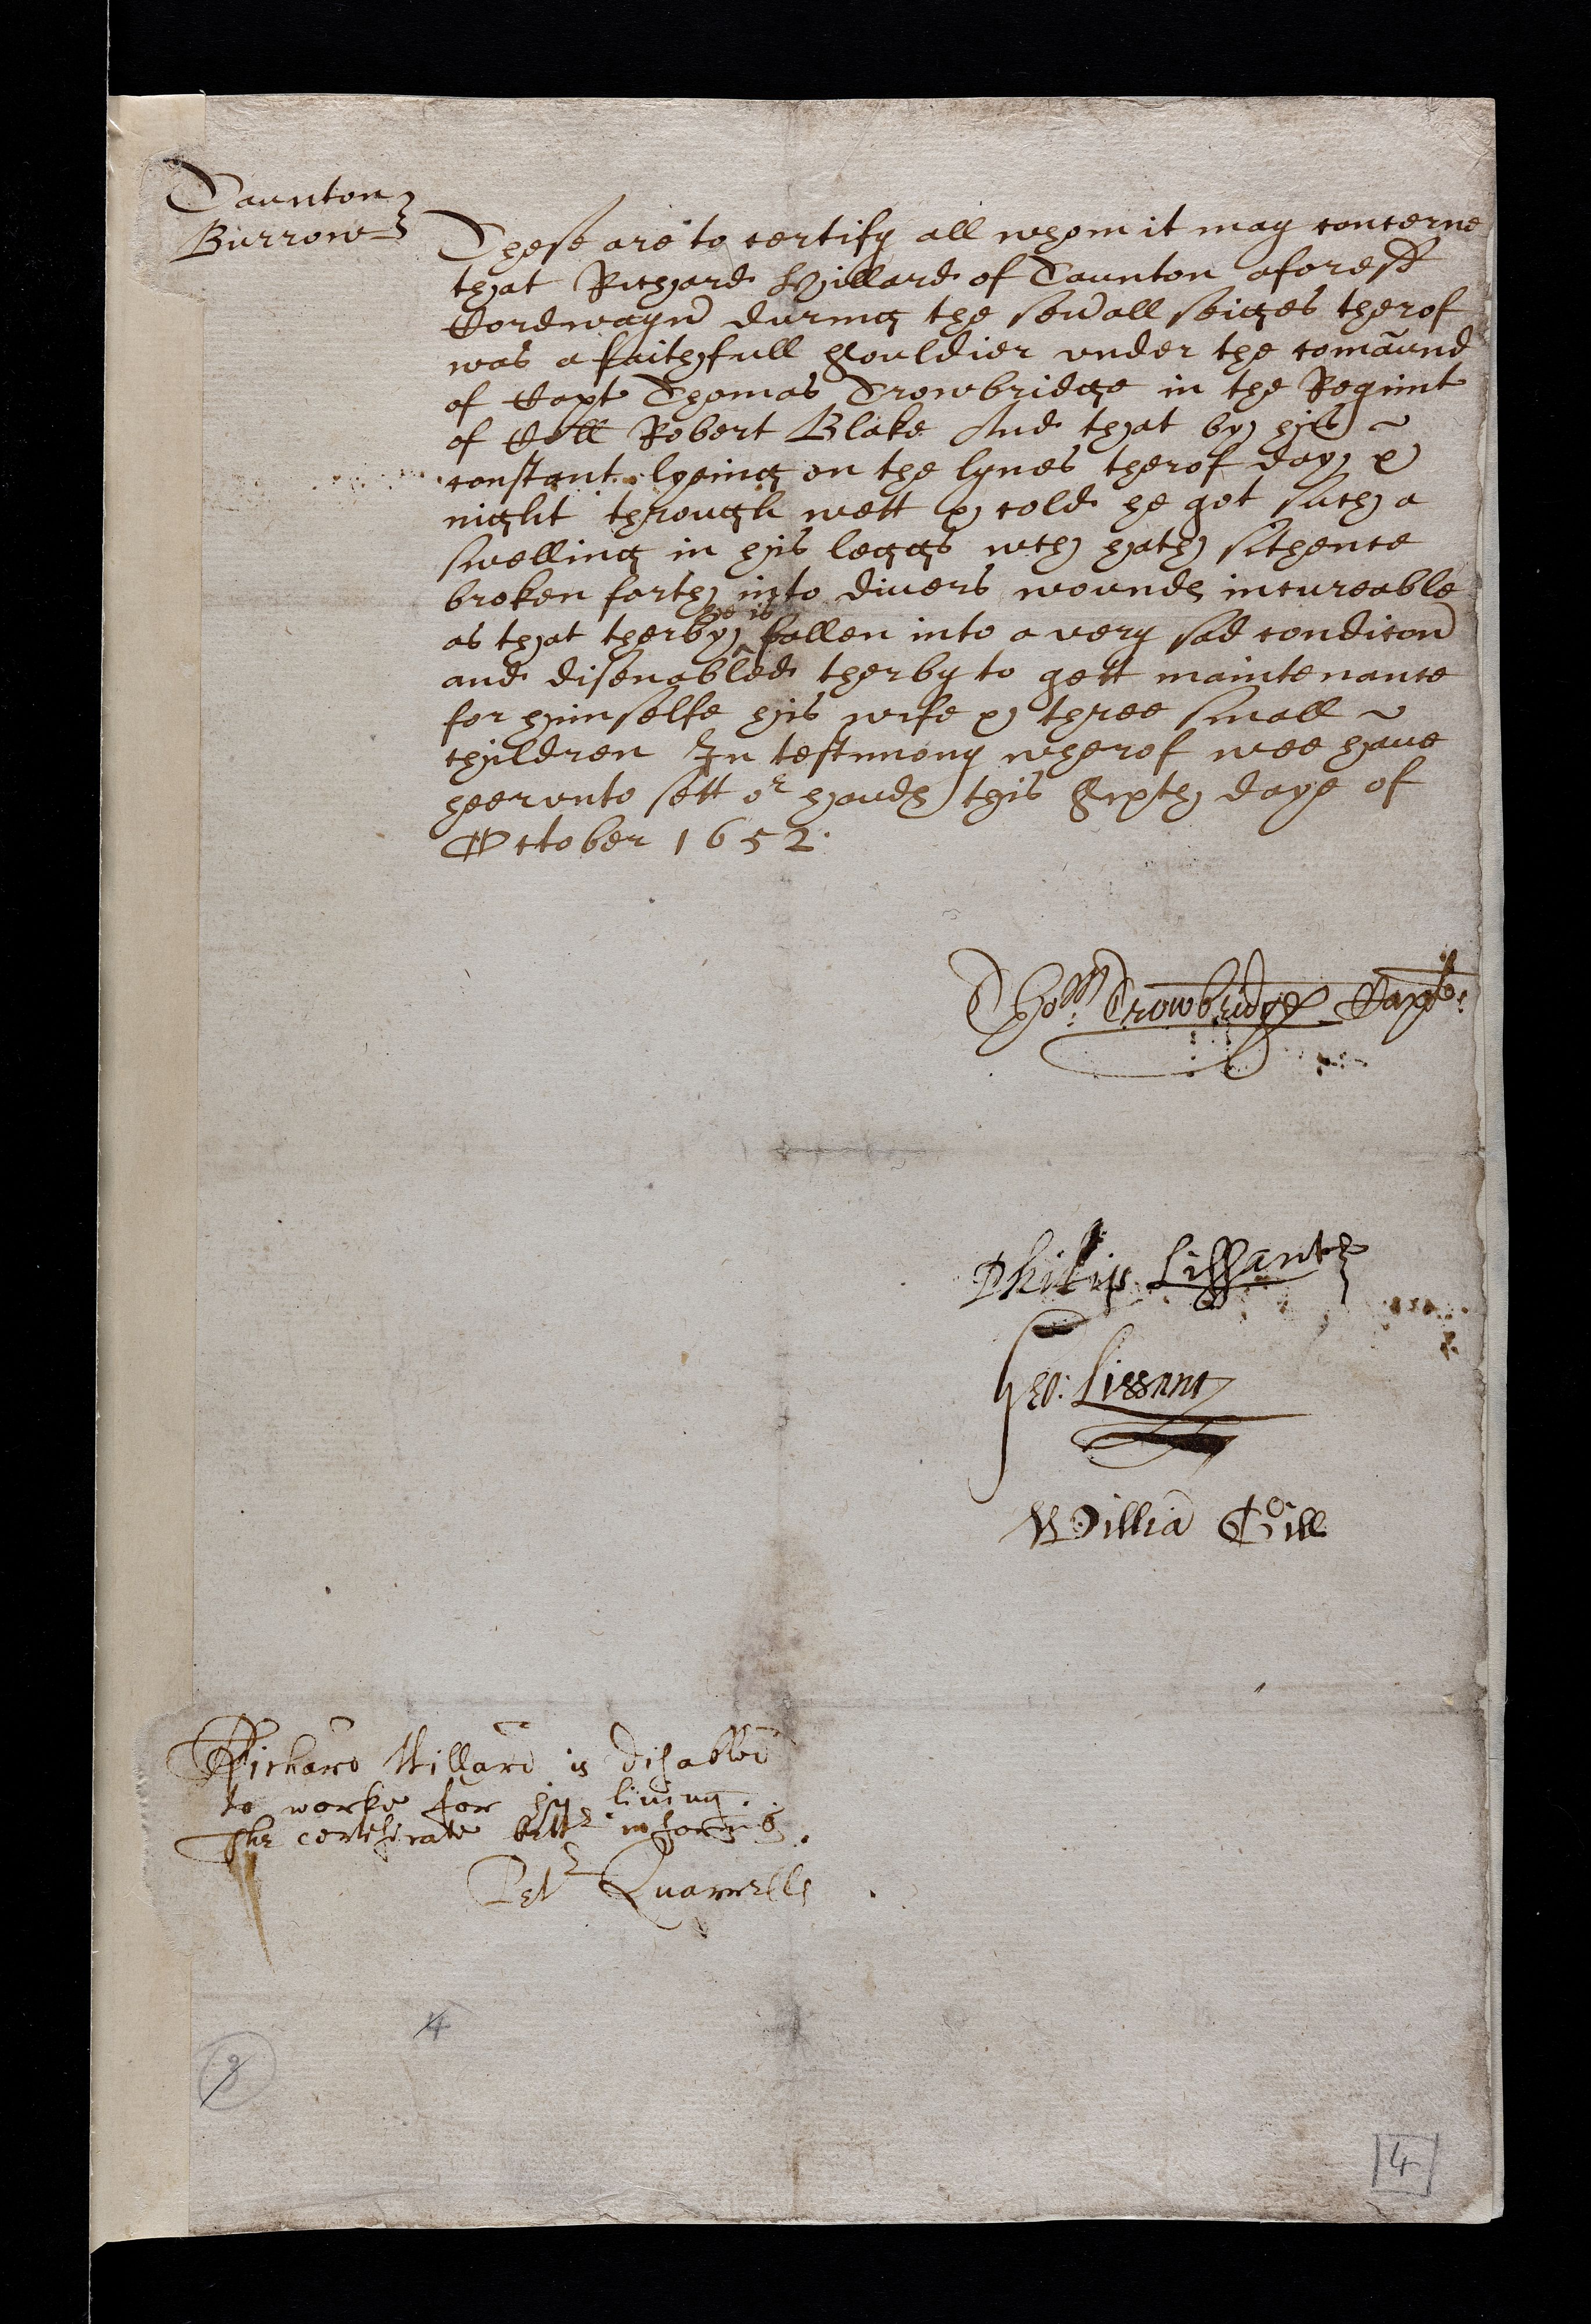 Taunton
Burrow
These are to certify all whom it may concerne
that Richard Hillard of Taunton aforesd
Cordwayn during the sev'all seiges therof
was a faithfull souldier vnder the comãund
of Capt Thomas Trowbridge in the Regimt
of Coll Robert Blake And that by his
constant lyeing on the lynes therof day &
night through wett & cold he got such a
swelling in his leggs wch hath sithence
broken forth into divers wounds incureable
he is
as that therby ^ fallen into a very sad condicon
and disenabled therby to gett maintenance
for himselfe his wife & three small
children In testimony wherof wee have
heervnto sett or hands this sixth daye of
October 1652.
Tho: Trowbridge Capt:
Philip Lissant
Geo: Lissant
Willia Gill
Richard Hillard is disabled
to worke for his living.
The certificate
Pet Quarrells
4
9
4